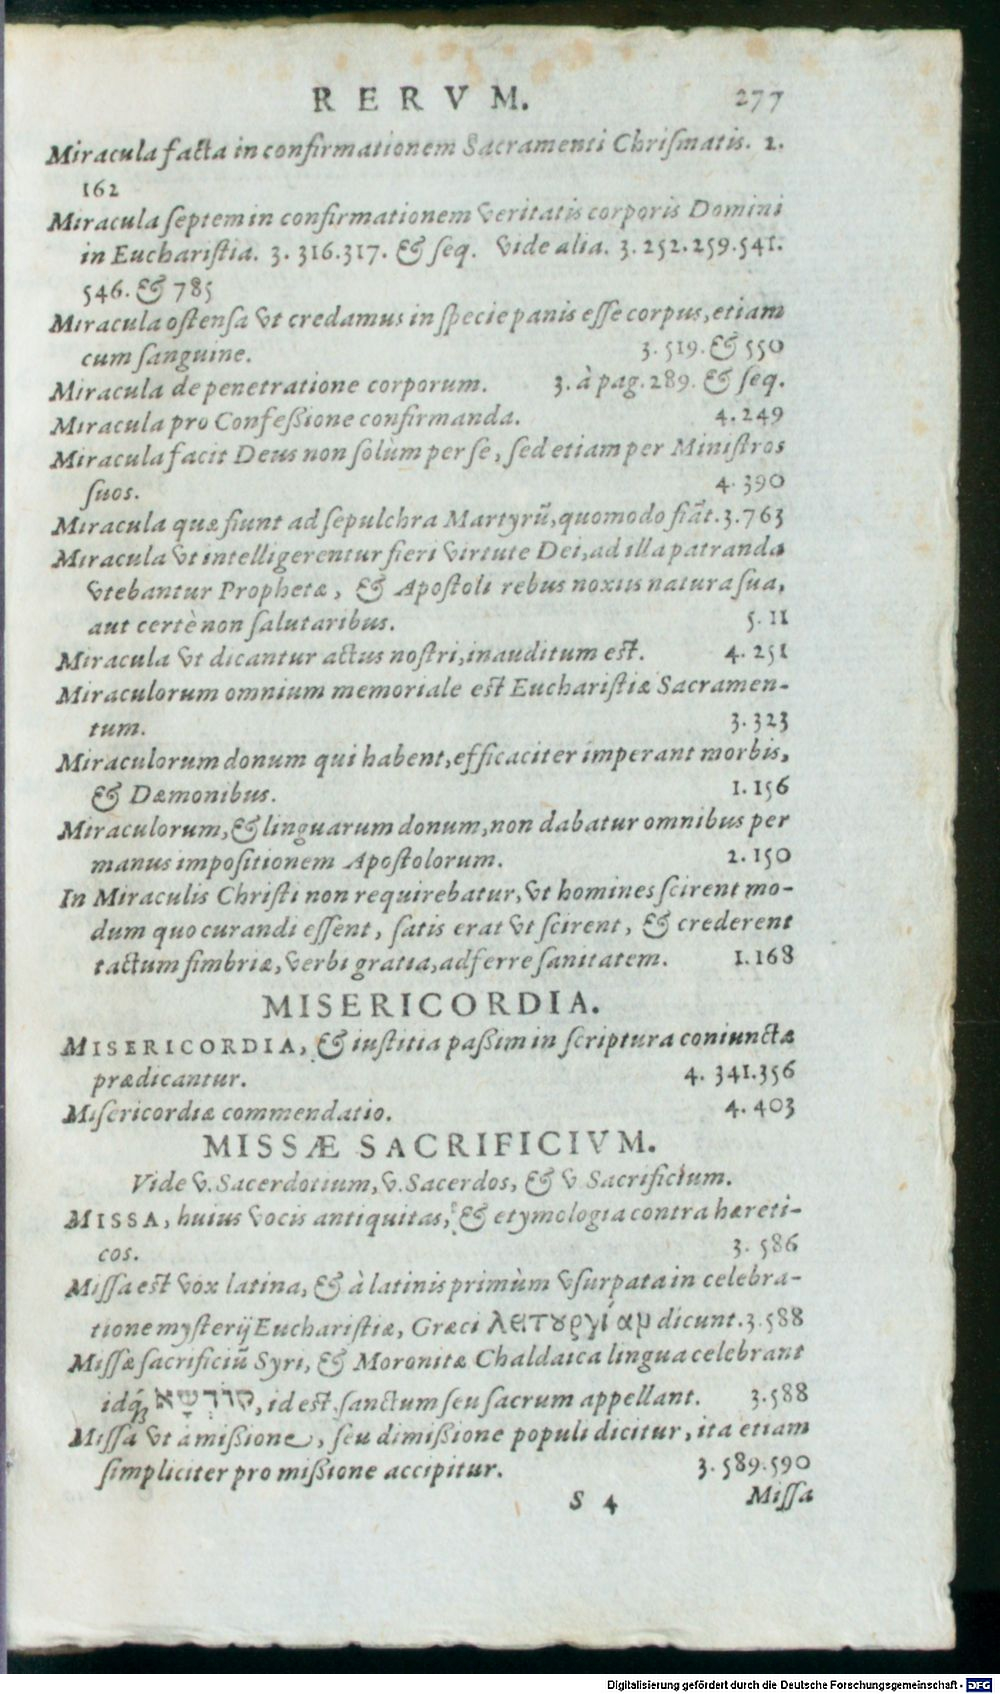 RERVM. 277
Miracula facta in confirmationem Sacramenti Chriſmatis. 2.
162
Miracula ſeptem in confirmationem veritatis corporis Domini
in Euchariſtia. 3. 316.317. & ſeq. Vide alia. 3. 252.259.541.
546. & 785
Miracula oſtenſa vt credamus in ſpecie panis eſſe corpus, etiam
cum ſanguine. 3. 519. & 550
Miracula de penetratione corporum. 3. à pag. 289. & ſeq.
Miracula pro Confeßione confirmanda. 4. 249
Miracula facit Deus non ſolùm per ſe, ſed etiam per Miniſtros
ſuos. 4. 390
Miracula quæ fiunt ad ſepulchra Martyrũ, quomodo fiãt. 3. 763
Miracula vt intelligerentur fieri virtute Dei, ad illa patranda
vtebantur Prophetæ, & Apoſtoli rebus noxiis natura ſua,
aut certè non ſalutaribus. 5. 11
Miracula vt dicantur actus noſtri, inauditum eſt. 4. 251
Miraculorum omnium memoriale eſt Euchariſtiæ Sacramen-
tum. 3. 323
Miraculorum donum qui habent, efficaciter imperant morbis,
& Dæmonibus. 1. 156
Miraculorum, & linguarum donum, non dabatur omnibus per
manus impoſitionem Apoſtolorum. 2. 150
In Miraculis Chriſti non requirebatur, vt homines ſcirent mo-
dum quo curandi eſſent, ſatis erat vt ſcirent, & crederent
tactum fimbriæ, verbi gratia, adferre ſanitatem. 1. 168
MISERICORDIA.
MISERICORDIA, & iuſtitia paßim in ſcriptura coniunctæ
prædicantur. 4. 341.356
Miſericordiæ commendatio. 4. 403
MISSÆ SACRIFICIVM.
Vide v. Sacerdotium, v. Sacerdos, & v Sacrificium.
MISSA, huius vocis antiquitas, & etymologia contra hæreti-
cos. 3. 586
Miſſa eſt vox latina, & à latinis primùm vſurpata in celebra-
tione myſterij Euchariſtiæ, Græci λειτȣργίαμ dicunt. 3. 588
Miſſæ ſacrificiũ Syri, & Moronitæ Chaldaica lingua celebrant
idq́ꝫ קוֹדְשָׁא, id eſt ſanctum ſeu ſacrum appellant. 3. 588
Miſſa vt à mißione, ſeu dimißione populi dicitur, ita etiam
ſimpliciter pro mißione accipitur. 3. 589.590
S 4 Miſſa
Digitalisierung gefördert durch die Deutsche Forschungsgemeinschaft - DFG